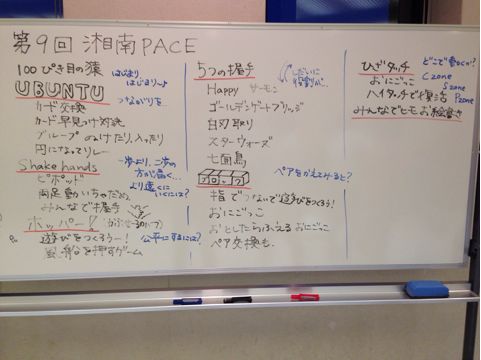 第9回 湘南PACE
100ぴき目の猿
はじまり
はじまり〜♪
UBUNTU
つながりを
カード交換
カード早見つけ対決
グループ ぬけたり、入ったり
円になってリレー
Shake hands
一歩より、二歩の
方が高く…
より遠くに
いくには?
ピボッド
両足動いちゃだめ
みんなで握手
ホッパー!!
遊びをつくろうー!
公平にするには?
風船を押すゲーム
5つの握手
しだいに
Happy サーモン
ゴールデンゲートブリッジ
白刃取り
スターウォーズ
七面鳥
ペアをかえてみると?
ブロック
指でつないで遊びをつくろう!
おにごっこ
おとしたらふえるおにごっこ
ペア交換も.
ひざタッチ
どこで動くか?
おにごっこ
C zone
S zone
P zone
ハイタッチで復活
みんなでヒモお絵書き